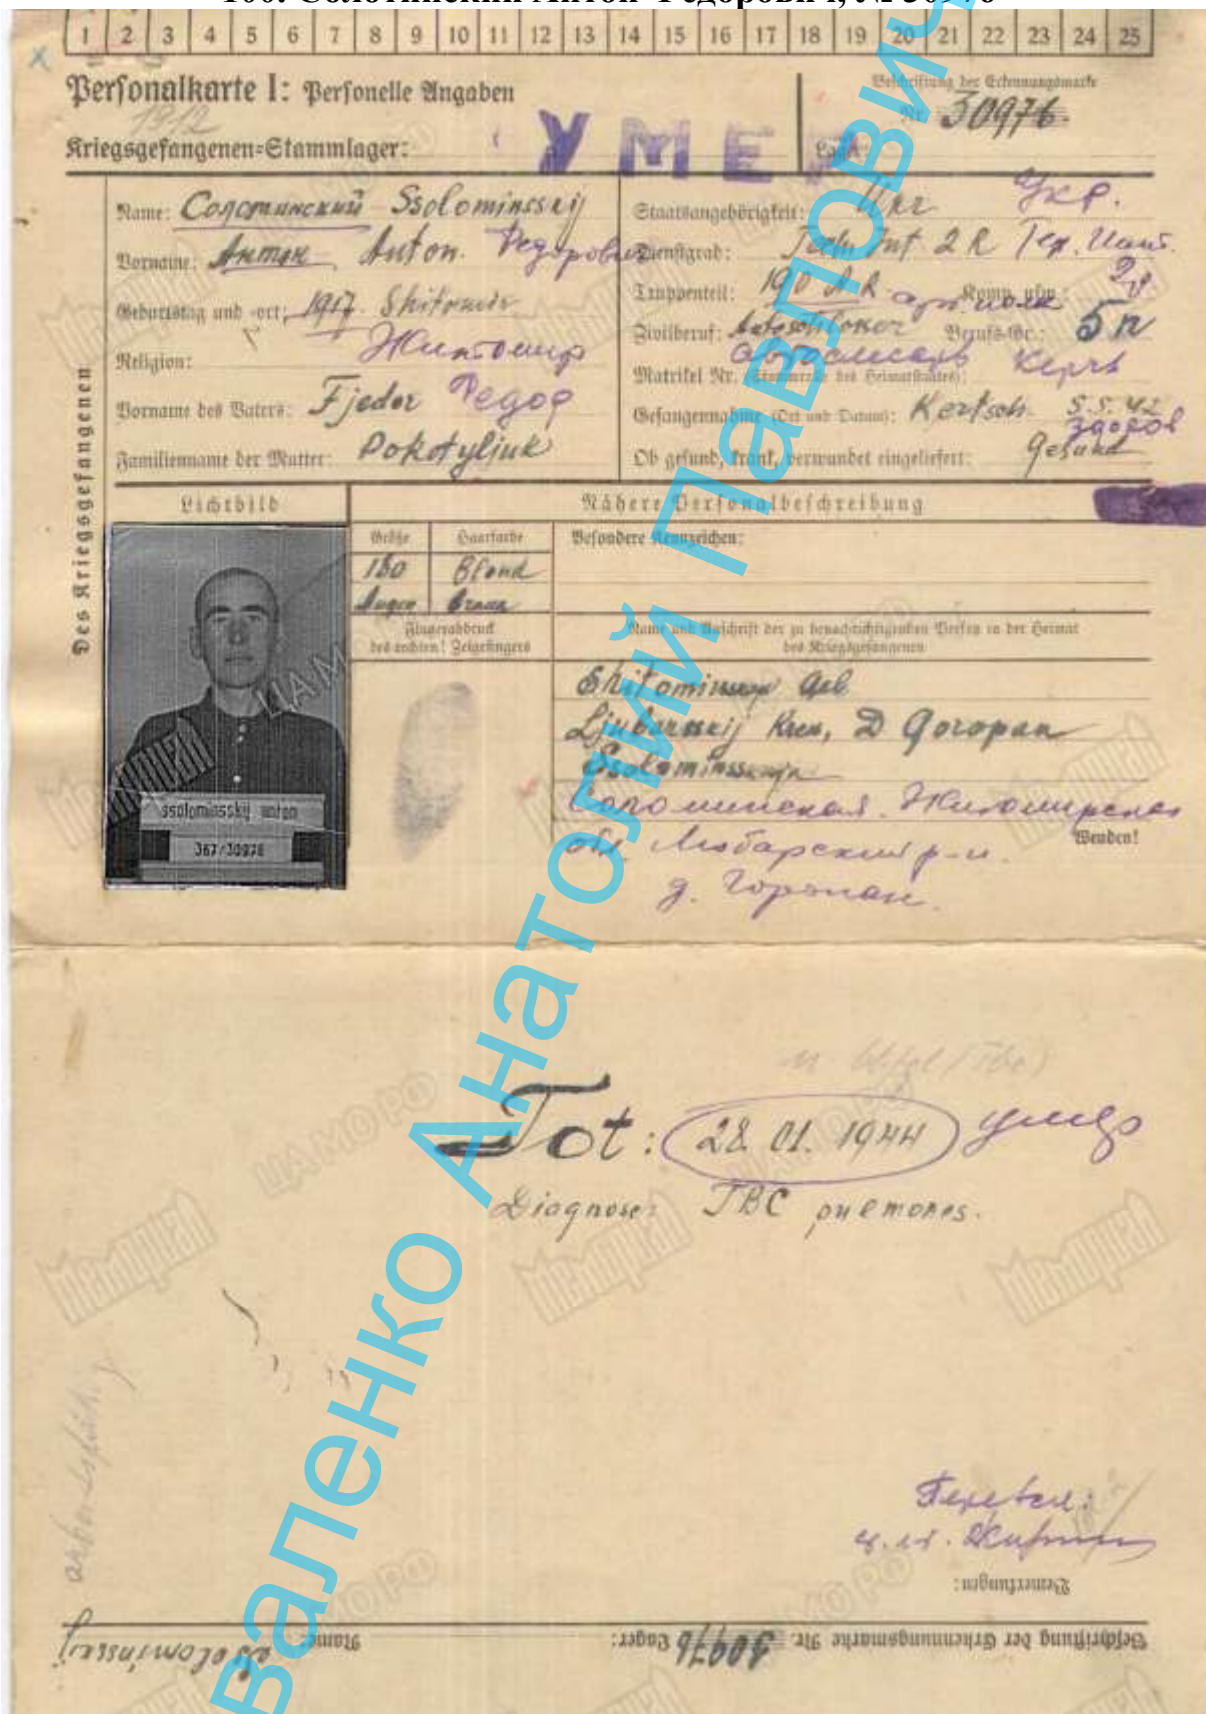 100. Солотинский Антон Федорович, № 30976
1 2 3 4 5 6 7 8 9 10 11 12 13 14 15 16 17 18 19 20 21 22 23 24 25
Personalkarte I: Personelle Angaben
Beschriftung der Erkennungsmarke
1912
Nr. 30976
Kriegsgefangenen-Stammlager:
УМЕР
Lager:
Des Kriegsgefangenen
Name: Солотинский Ssolominsskij
Vorname: Антон Anton. Федорович
Geburtstag und -ort: 1917. Shitomir
Житомир
Religion:
Vorname des Vaters: Fjedor Федор
Familienname der Mutter: Pokotyljuk
Staatsangehörigkeit: Ukr Укр.
Dienstgrad: Techn Int 2 R Тех. Инт. 2р
Truppenteil: 190 A.R. арт. полк Komp. usw.:
Zivilberuf: Autoschlosser Berufs-Gr.: 5 п
автослесарь
Matrikel Nr. (Stammrolle des Heimatstaates): Керчь
Gefangennahme (Ort und Datum): Kertsch 5.5.42
здоров
Ob gesund, krank, verwundet eingeliefert: Gesund
Lichtbild
Nähere Personalbeschreibung
Größe Haarfarbe Besondere Kennzeichen:
180 Blond
Augen braun
Fingerabdruck
des rechten! Zeigefingers
Name und Anschrift der zu benachrichtigenden Person in der Heimat
des Kriegsgefangenen
Geb.
Ljubarsskij Kreis, D Goropan
Ssolominsskaja
Соломинская. Житомирская
обл. Любарский р-н.
д. Горопан.
Wenden!
ssolominsskij anton
367/30976
Tot: 28. 01. 1944 умер
Diagnose: TBC pulmones.
Перевел:
Bemerkungen:
Name: Ssolominsskij
Beschriftung der Erkennungsmarke Nr. 30976 Lager:
ЦАМО РФ
Мемориал
валенко Анатолий Павлович